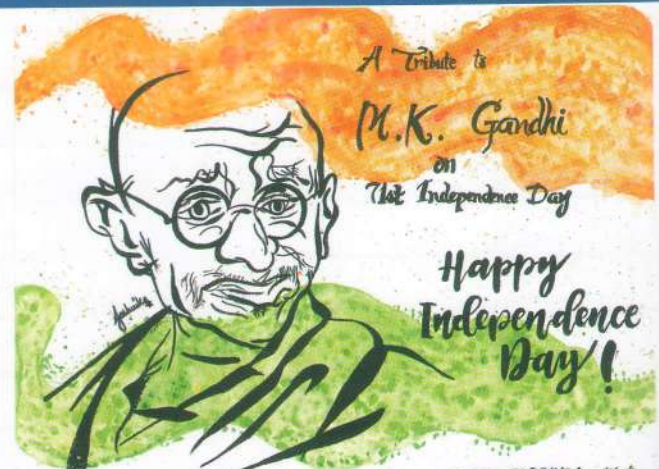 A Tribute to
M.K. Gandhi
on
71st Independence Day
Happy
Independence
Day!